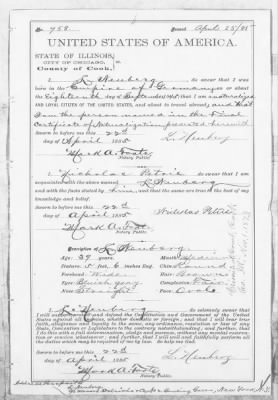 No. 758 Issued April 25/85
UNITED STATES OF AMERICA.
STATE OF ILLINOIS,
CITY OF CHICAGO, ss.
County of Cook,
I L. Neuberg do swear that I was
born in the Empire of Germany on or about
the Eighteenth day of September that I am a naturalized
AND LOYAL CITIZEN OF THE UNITED STATES, and about to travel abroad, and that
I am the person named in the
Certificate of Naturalization presented herewith
Sworn to before me this 22d
day of April 1885
Mark A. Foote
Notary Public.
I Nicholas Petrie do swear that I am
acquainted with the above named L. Neuberg
and with the facts stated by him, and that the same are true to the best of my
knowledge and belief.
Sworn to before me this 22d
day of April 1885
Nicholas Petrie
Mark A. Foote
Notary Public.
Description of L. Neuberg.
Age: 39 years.
Stature: 5 feet, 8 inches Eng.
Forehead:
Eyes: Bluish gray
Nose: Straight
Mouth: Medium
Chin: Round
Hair: Brown
Complexion: Fair
Face: Oval
I, L. Neuberg do solemnly swear that
I will support, protect and defend the Constitution and Government of the United
States against all enemies, whether domestic or foreign; and that I will bear true
faith, allegiance and loyalty to the same, any ordinance, resolution or law of any
State, Convention or Legislature to the contrary notwithstanding; and further, that
I do this with a full determination, pledge and purpose, without any mental reserva-
tion or evasion whatsoever; and further, that I will well and faithfully perform all
the duties which may be required of me by law. So help me God.
Sworn to before me this 22d
day of April 1885
Mark A. Foote
Notary Public.
New York